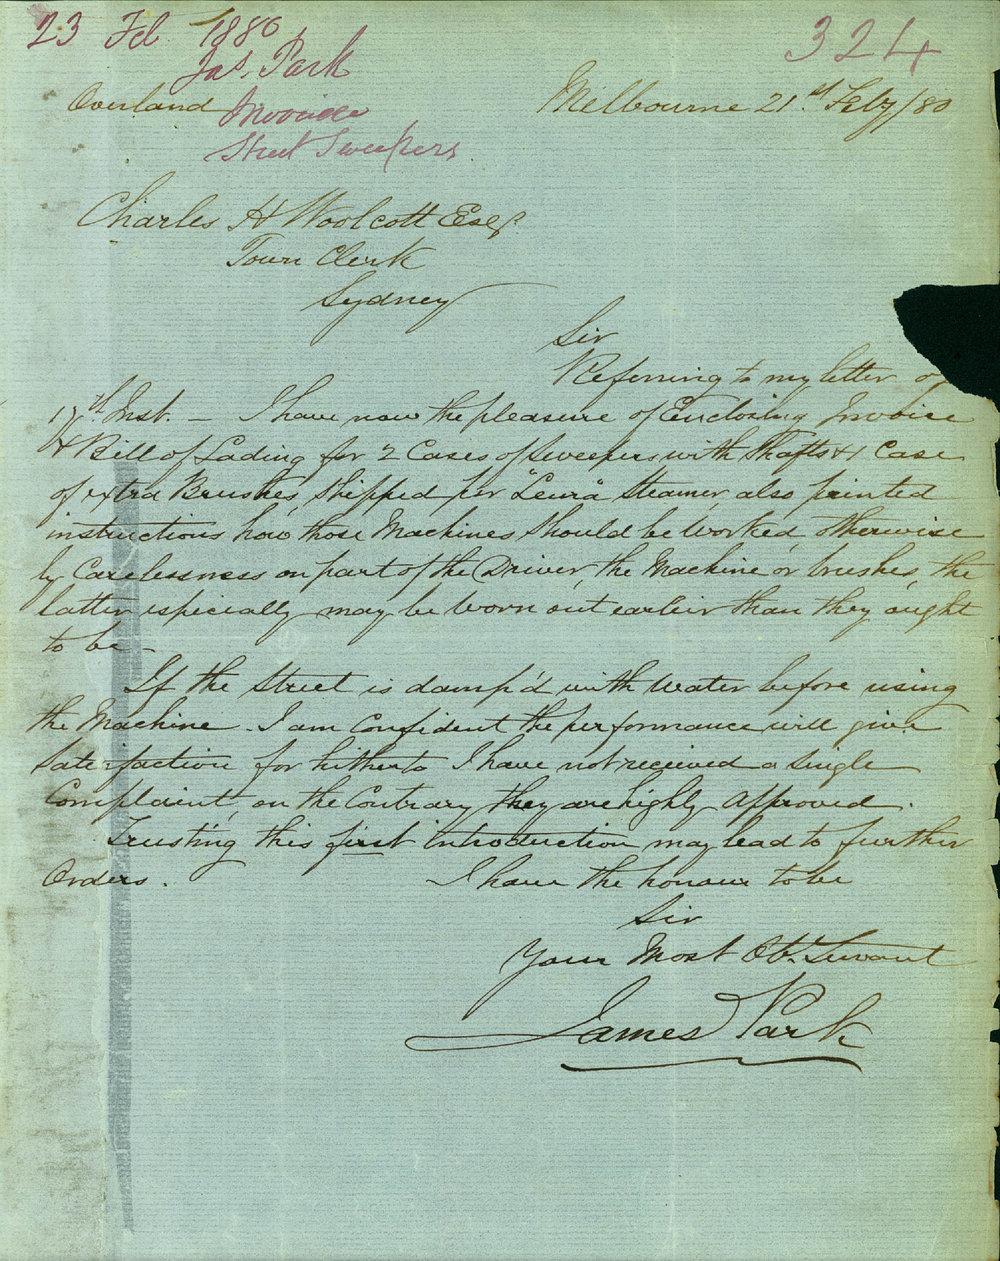 23 Feb 1880
324
Jas. Park
Overland
Invoice
Street Sweepers
Melbourne 21st Feby/80
Charles H Woolcott Esqr
Town Clerk
Sydney
Sir
Referring to my letter of
17th Inst. - I have now the pleasure of Enclosing Invoice
& Bill of Lading for 2 Cases of Sweepers with Shafts & 1 Case
of extra Brushes, Shipped per "Leura" Steamer, also printed
instructions how those Machines Should be Worked, otherwise
by Carelessness on part of the Driver, the Machine or brushes, the
latter especially may be Worn out earlier than they aught
to be -
If the Street is damp'd with Water before using
the Machine. I am Confident the performance will give
Satisfaction, for hitherto I have not received a Single
Complaint, on the Contrary, they are highly Approved.
Trusting this first Introduction may lead to further
Orders.
I have the honour to be
Sir
Your Most Obt. Servant
James Park